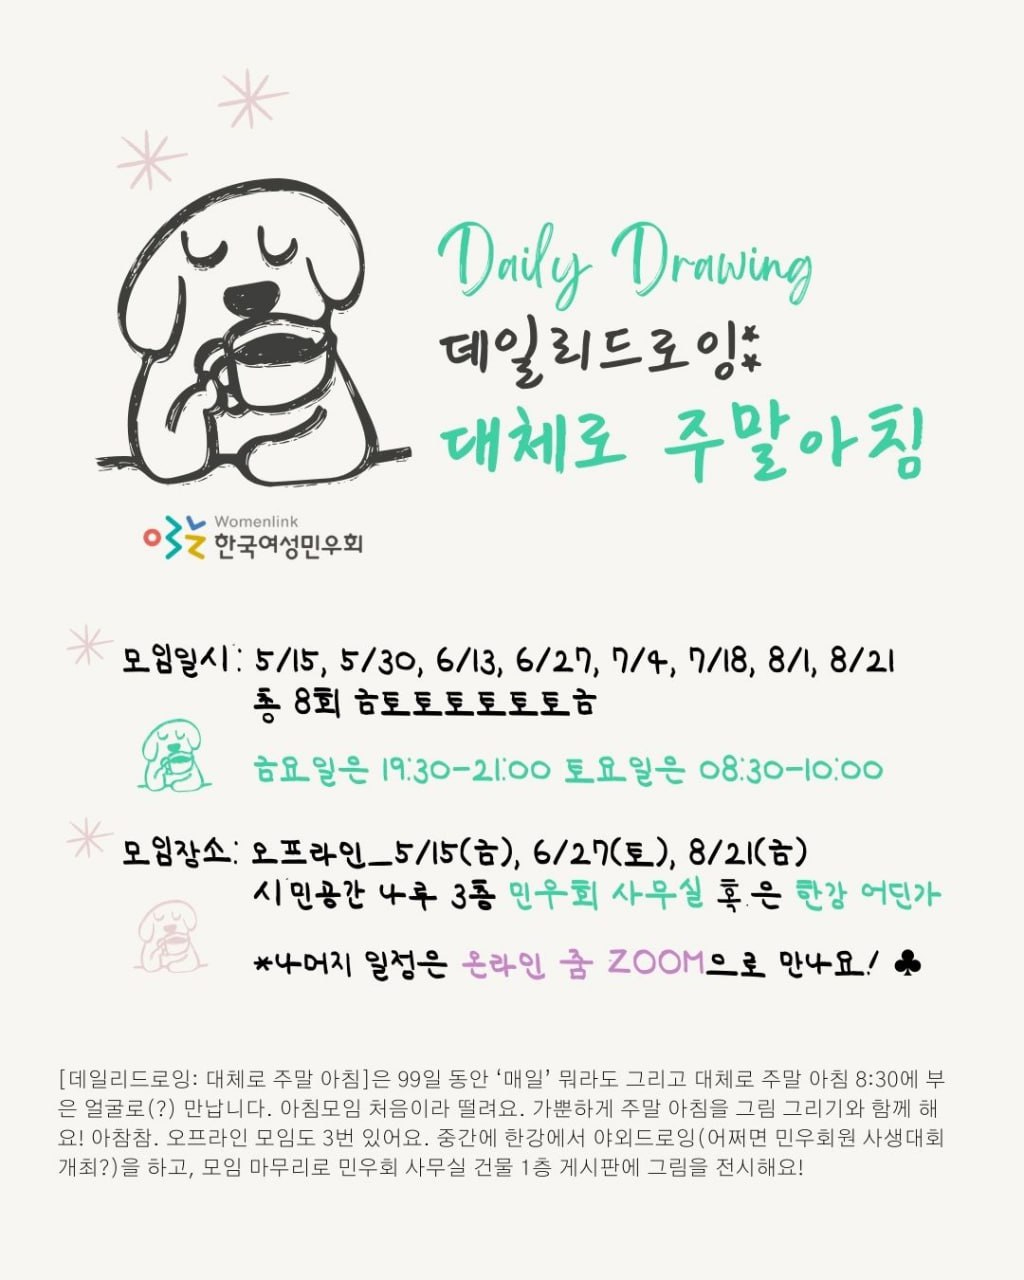 Daily Drawing
데일리드로잉:
대체로 주말아침
Womenlink
한국여성민우회
모임일시: 5/15, 5/30, 6/13, 6/27, 7/4, 7/18, 8/1, 8/21
총 8회 금토토토토토토금
금요일은 19:30-21:00 토요일은 08:30-10:00
모임장소: 오프라인_5/15(금), 6/27(토), 8/21(금)
시민공간 나루 3층 민우회 사무실 혹은 한강 어딘가
*나머지 일정은 온라인 줌 ZOOM으로 만나요! ♣
[데일리드로잉: 대체로 주말 아침]은 99일 동안 ‘매일’ 뭐라도 그리고 대체로 주말 아침 8:30에 부
은 얼굴로(?) 만납니다. 아침모임 처음이라 떨려요. 가뿐하게 주말 아침을 그림 그리기와 함께 해
요! 아참참. 오프라인 모임도 3번 있어요. 중간에 한강에서 야외드로잉(어쩌면 민우회원 사생대회
개최?)을 하고, 모임 마무리로 민우회 사무실 건물 1층 게시판에 그림을 전시해요!